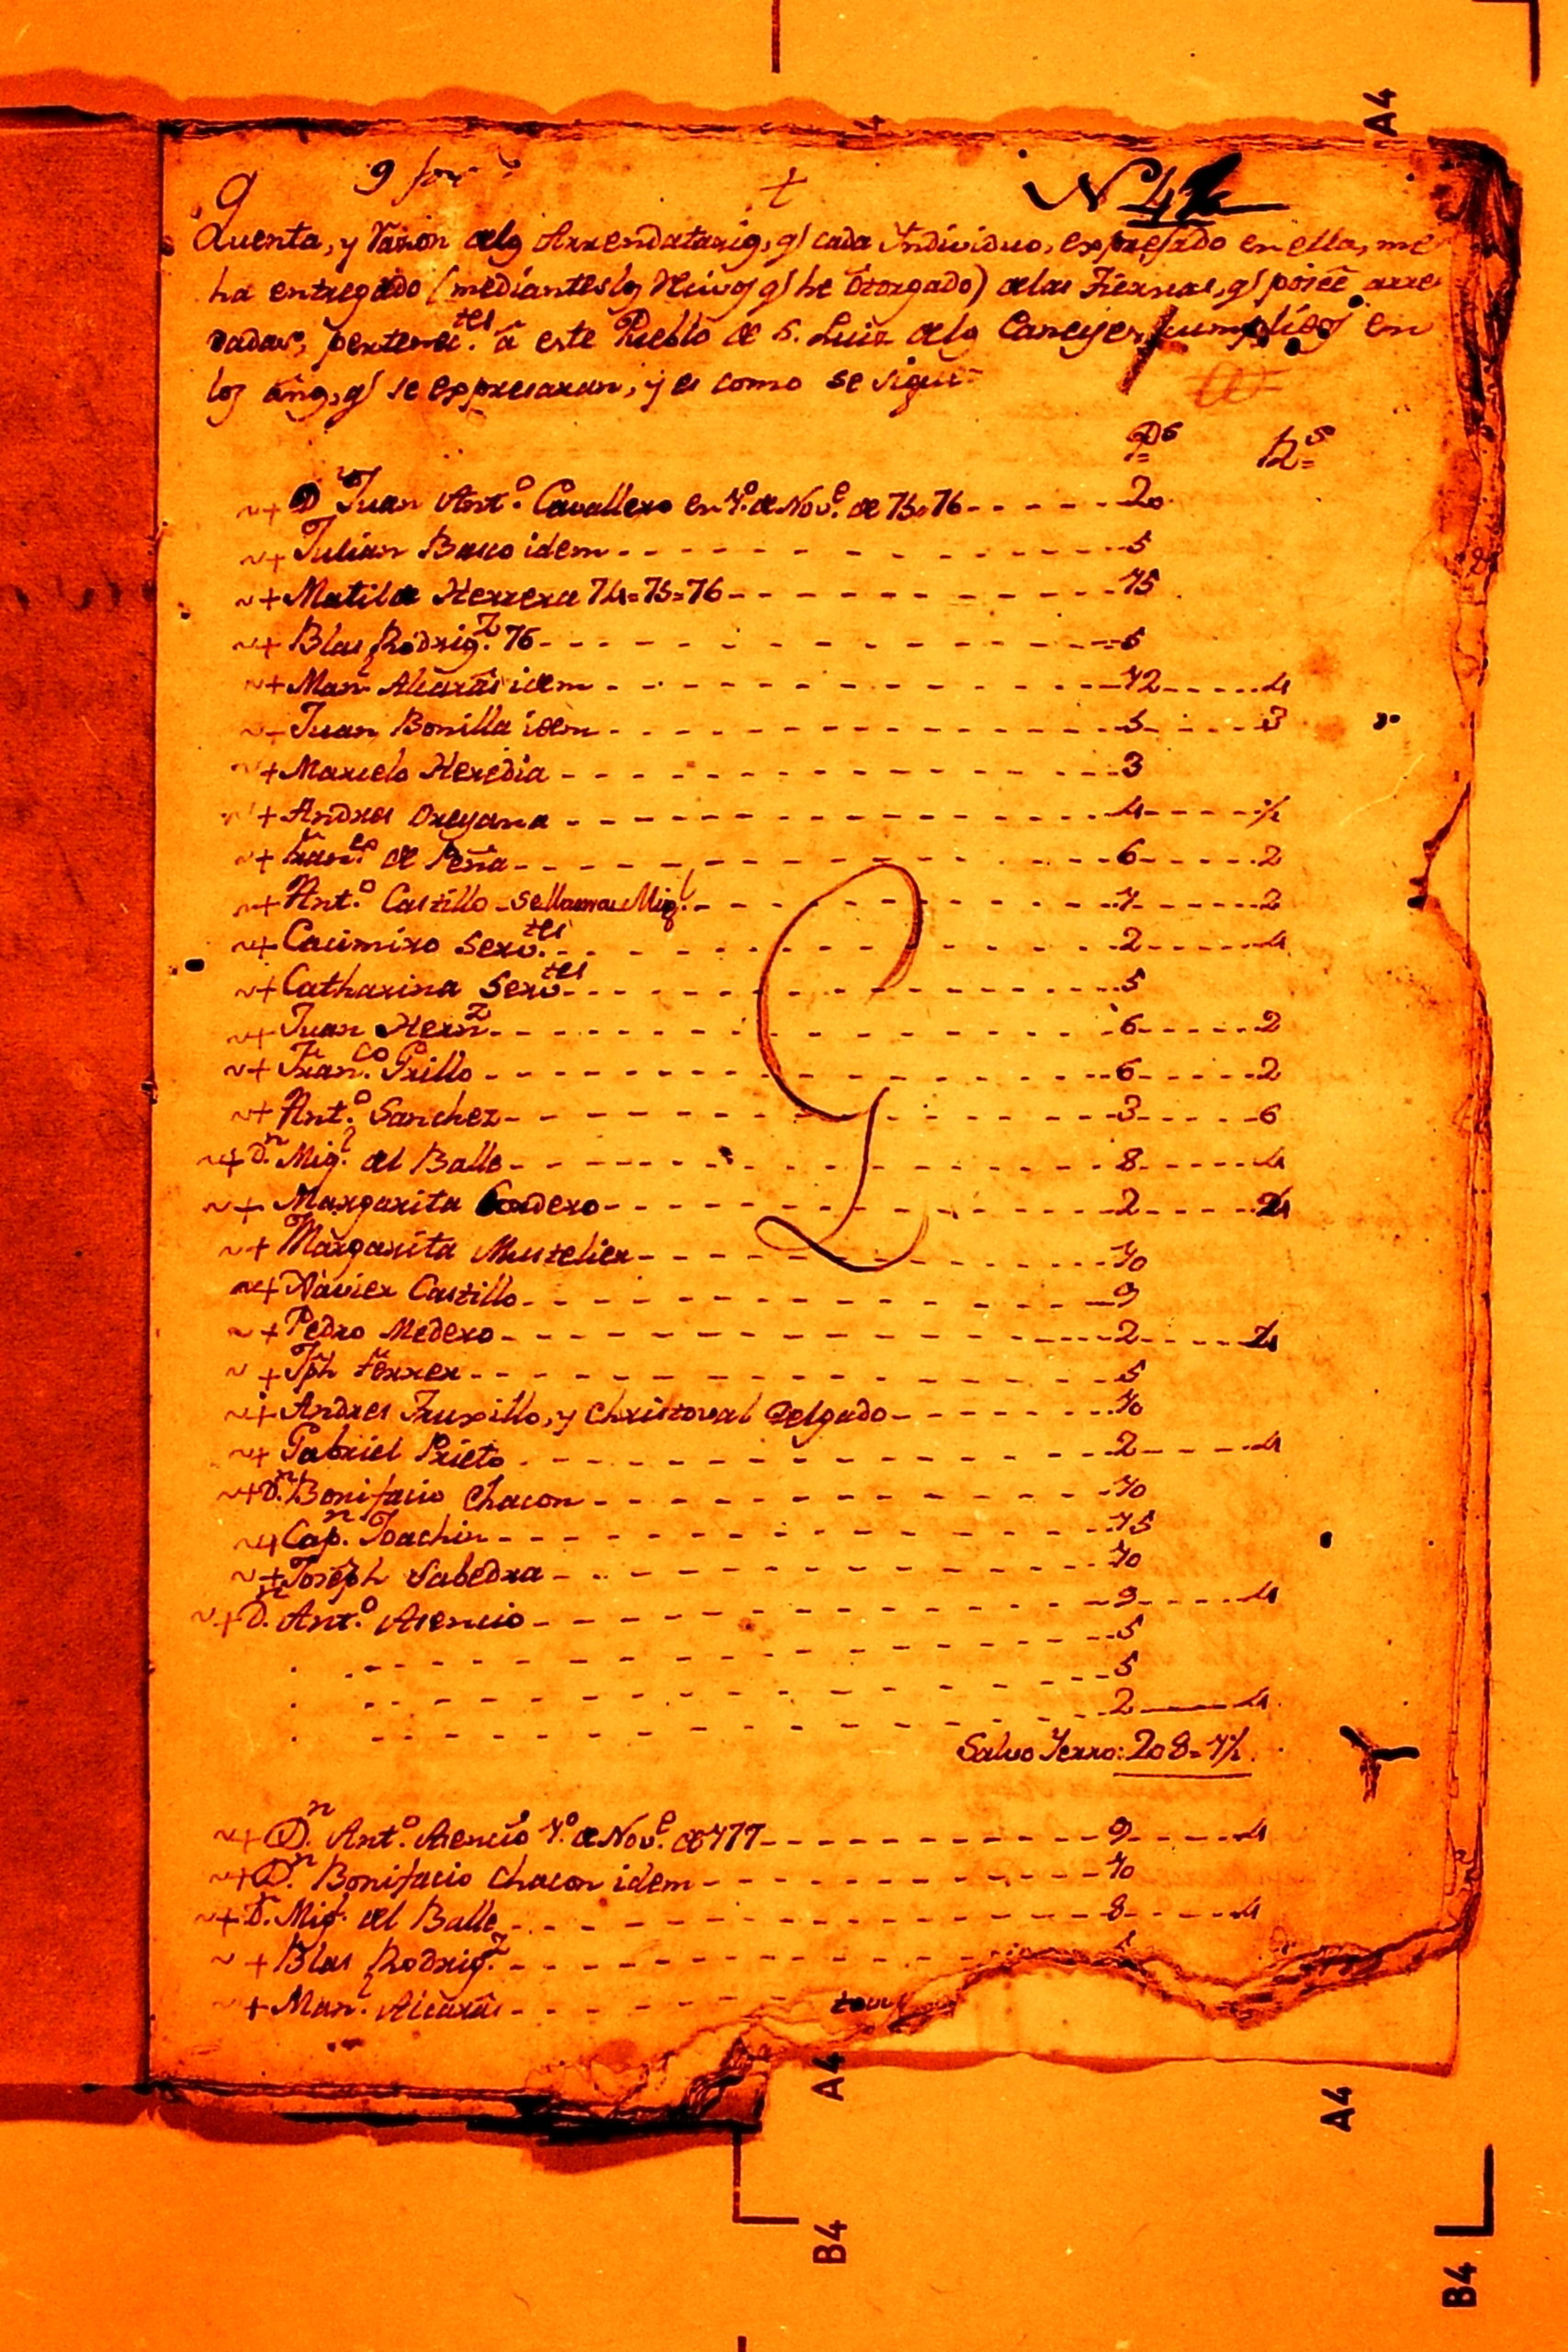 9 for
t
N 42
Quenta, y Razon delos Arrendatarios, q/ cada Individuo, expresado en ella, me
ha entregado (mediantes los Recivos q/ he otorgado) delas Tierras, q/ poseé arre
dadas, pertenec.tes â este Pueblo de S. Luiz delos Caneyes, cumplidos en
los años, q/ se expresaran, y es como se sigue
Ps Rs
~+ Dn Juan Ant.o Cavallero en 1.o de Nov.e de 75.76 - - - 20
~+ Julian Basco idem - - - 5
~+ Matilde Herrera 74=75=76 - - - 15
~+ Blas Rodrig.z 76 - - - 5
~+ Man.l Alcarás idem - - - 12 - - - 4
~+ Juan Bonilla idem - - - 5 - - - 3
~+ Marcelo Heredia - - - 3
~+ Andres Oreyana - - - 4 - - - 1/2
~+ Fran.co de Peña - - - 6 - - - 2
~+ Ant.o Castillo - se llama Mig.l - - - 7 - - - 2
~+ Casimiro Serv.tes - - - 2 - - - 4
~+ Catharina Serv.tes - - - 5
~+ Juan Hern.z - - - 6 - - - 2
~+ Fran.co Grillo - - - 6 - - - 2
~+ Ant.o Sanchez - - - 3 - - - 6
~+ D.n Mig.l del Balle - - - 8 - - - 4
~+ Margarita Cordero - - - 2 - - - 4
~+ Margarita Mustelier - - - 10
~+ Xavier Castillo - - - 9
~+ Pedro Medero - - - 2 - - - 4
~+ Jph Ferrer - - - 5
~+ Andres Truxillo, y Christoval Delgado - - - 10
~+ Gabriel Prieto - - - 2 - - - 4
~+ D.n Bonifacio Chacon - - - 10
~+ Cap.n Joachin - - - 15
~+ Joseph Sabedra - - - 10
~+ D.n Ant.o Asencio - - - 9 - - - 4
- - - 5
- - - 5
- - - 2 - - - 4
Salvo Yerro: 208=1/2
~+ D.n Ant.o Asencio 1.o de Nov.e de 777 - - - 9 - - - 4
~+ D.n Bonifacio Chacon idem - - - 10
~+ D.n Mig.l del Balle - - - 8 - - - 4
~+ Blas Rodrig.z - - -
~+ Man.l Alcarás - - -
A4
A4
A4
B4
B4